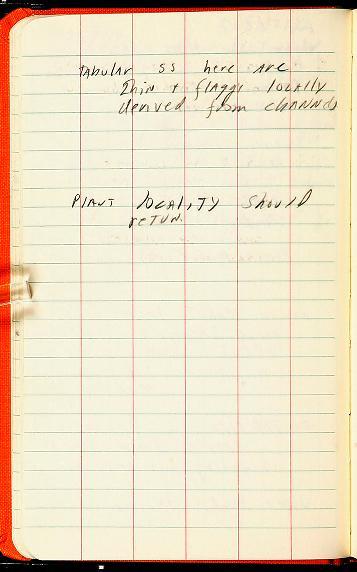 Tabular ss here are
thin + flaggy locally
derived from channels
Plant locality should
retun.